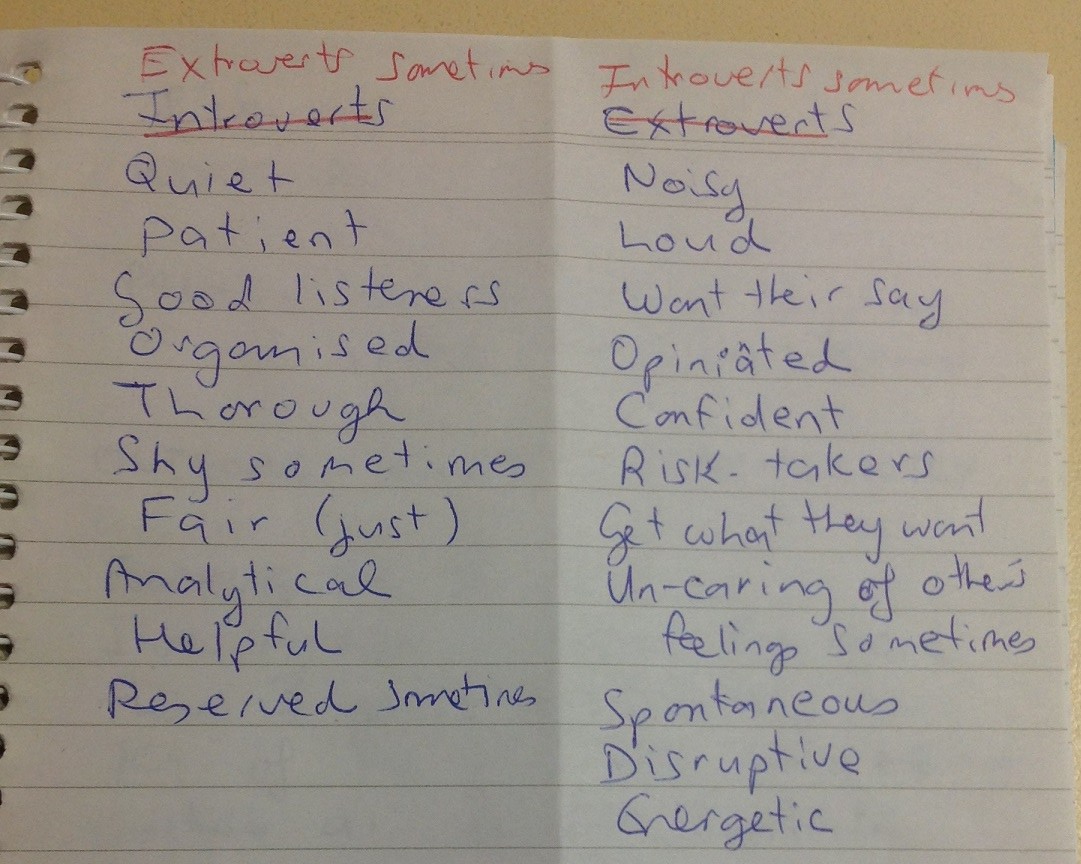 Extroverts sometims
Introverts
Quiet
Patient
Good listeners
Organised
Thorough
Shy sometimes
Fair (just)
Analytical
Helpful
Reserved sometimes
Introverts sometims
Extroverts
Noisy
Loud
Want their say
Opiniated
Confident
Risk-takers
Get what they want
Un-caring of others
feelings sometimes
Spontaneous
Disruptive
Energetic